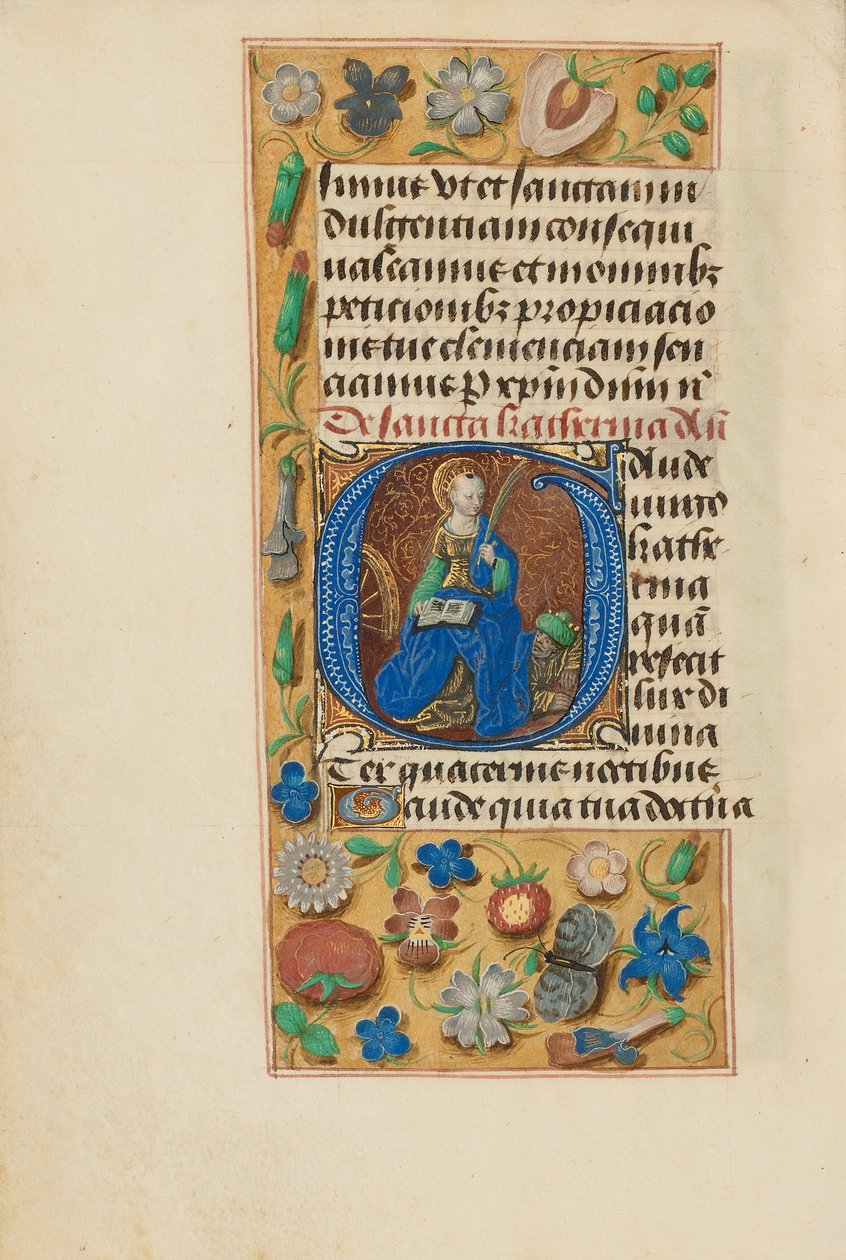 simus vt et sanctam in
dulgentiam consequi
ualeamus et in omnibꝫ
peticionibꝫ propiciacio
nis tue clemenciam sen
ciamus ꝑ xp̄m dn̄m n̄r
De sancta katherina an̄
Gaude
uirgo
kathe
rina
quā
refecit
lux di
uina
Ter quaternis noctibus
Gaude quia tua doctⁱna